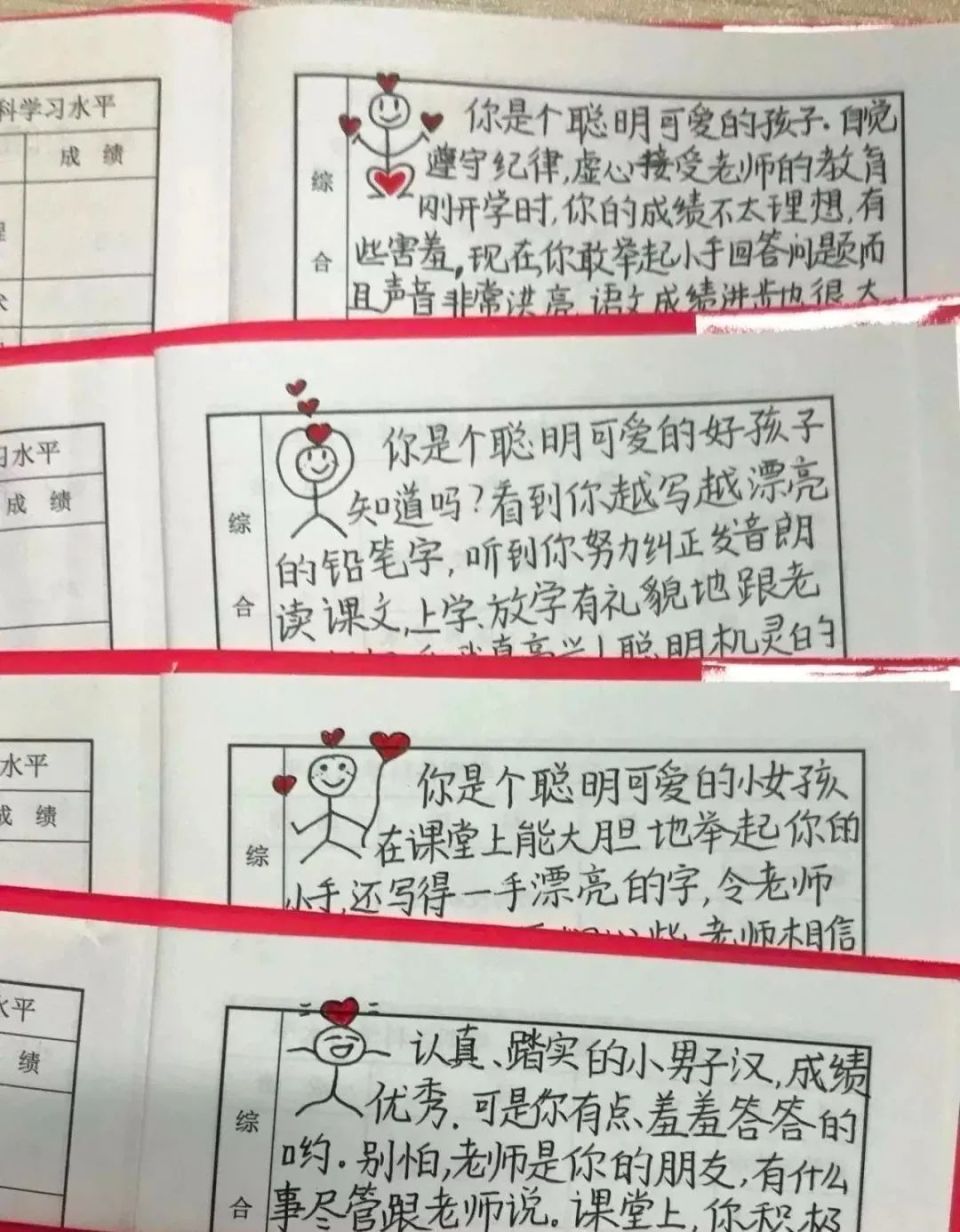 科学习水平
成 绩
综
合
你是个聪明可爱的孩子.自觉
遵守纪律,虚心接受老师的教育
刚开学时,你的成绩不太理想,有
些害羞,现在,你敢举起小手回答问题而
且声音非常洪亮,语文成绩进步也很大
习水平
成 绩
综
合
你是个聪明可爱的好孩子
知道吗?看到你越写越漂亮
的铅笔字,听到你努力纠正发音朗
读课文,上学、放学有礼貌地跟老
真高兴!聪明机灵的
水平
成 绩
综
你是个聪明可爱的小女孩
在课堂上能大胆地举起你的
小手,还写得一手漂亮的字,令老师
些,老师相信
水平
绩
综
合
认真、踏实的小男子汉,成绩
优秀.可是你有点羞羞答答的
哟。别怕,老师是你的朋友,有什么
事尽管跟老师说。课堂上,你积极